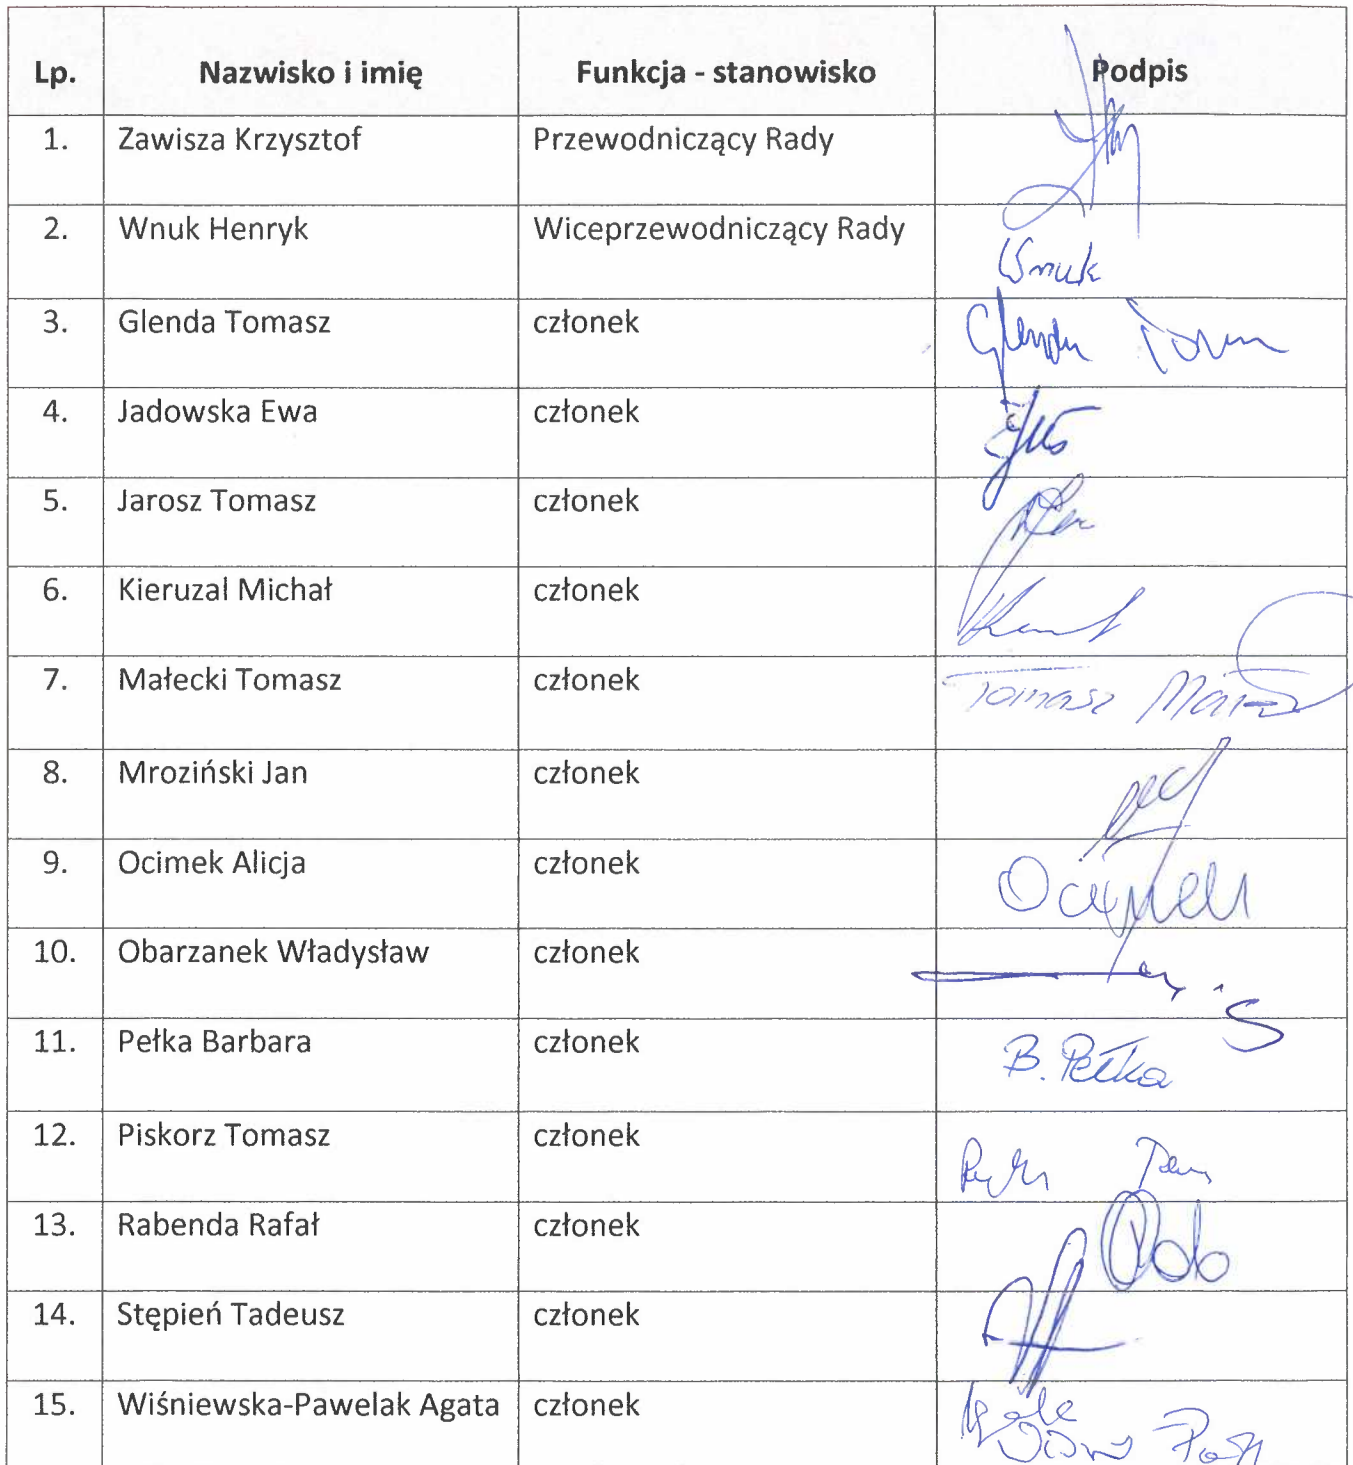 Lp. Nazwisko i imię Funkcja - stanowisko Podpis
1. Zawisza Krzysztof Przewodniczący Rady
2. Wnuk Henryk Wiceprzewodniczący Rady Wnuk
3. Glenda Tomasz członek Glenda
4. Jadowska Ewa członek
5. Jarosz Tomasz członek
6. Kieruzal Michał członek
7. Małecki Tomasz członek Tomasz
8. Mroziński Jan członek
9. Ocimek Alicja członek Ocimek
10. Obarzanek Władysław członek
11. Pełka Barbara członek B. Pełka
12. Piskorz Tomasz członek
13. Rabenda Rafał członek
14. Stępień Tadeusz członek
15. Wiśniewska-Pawelak Agata członek